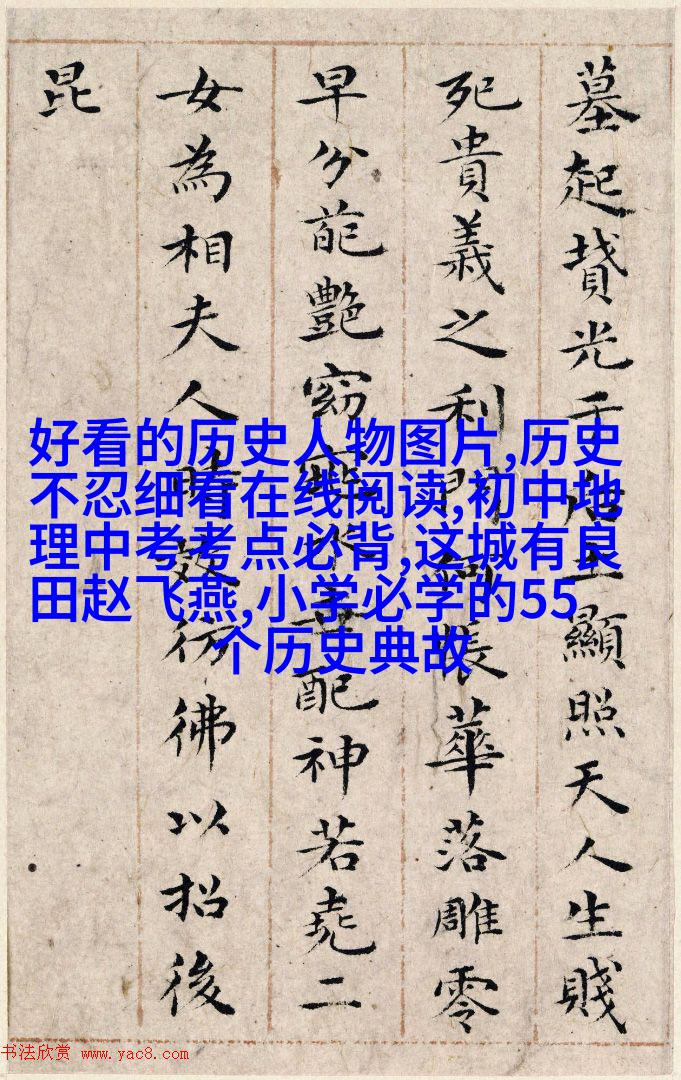 墓起墳光于后土顯照天人生賤
死貴義之利門何悵華落雕零
早分葩豔窈窕永世配神若堯二
女為相夫人時效彷彿以招後
昆
好看的历史人物图片,历史
不忍细看在线阅读,初中地
理中考考点必背,这城有良
田赵飞燕,小学必学的55
个历史典故
书法欣赏 www.yac8.com